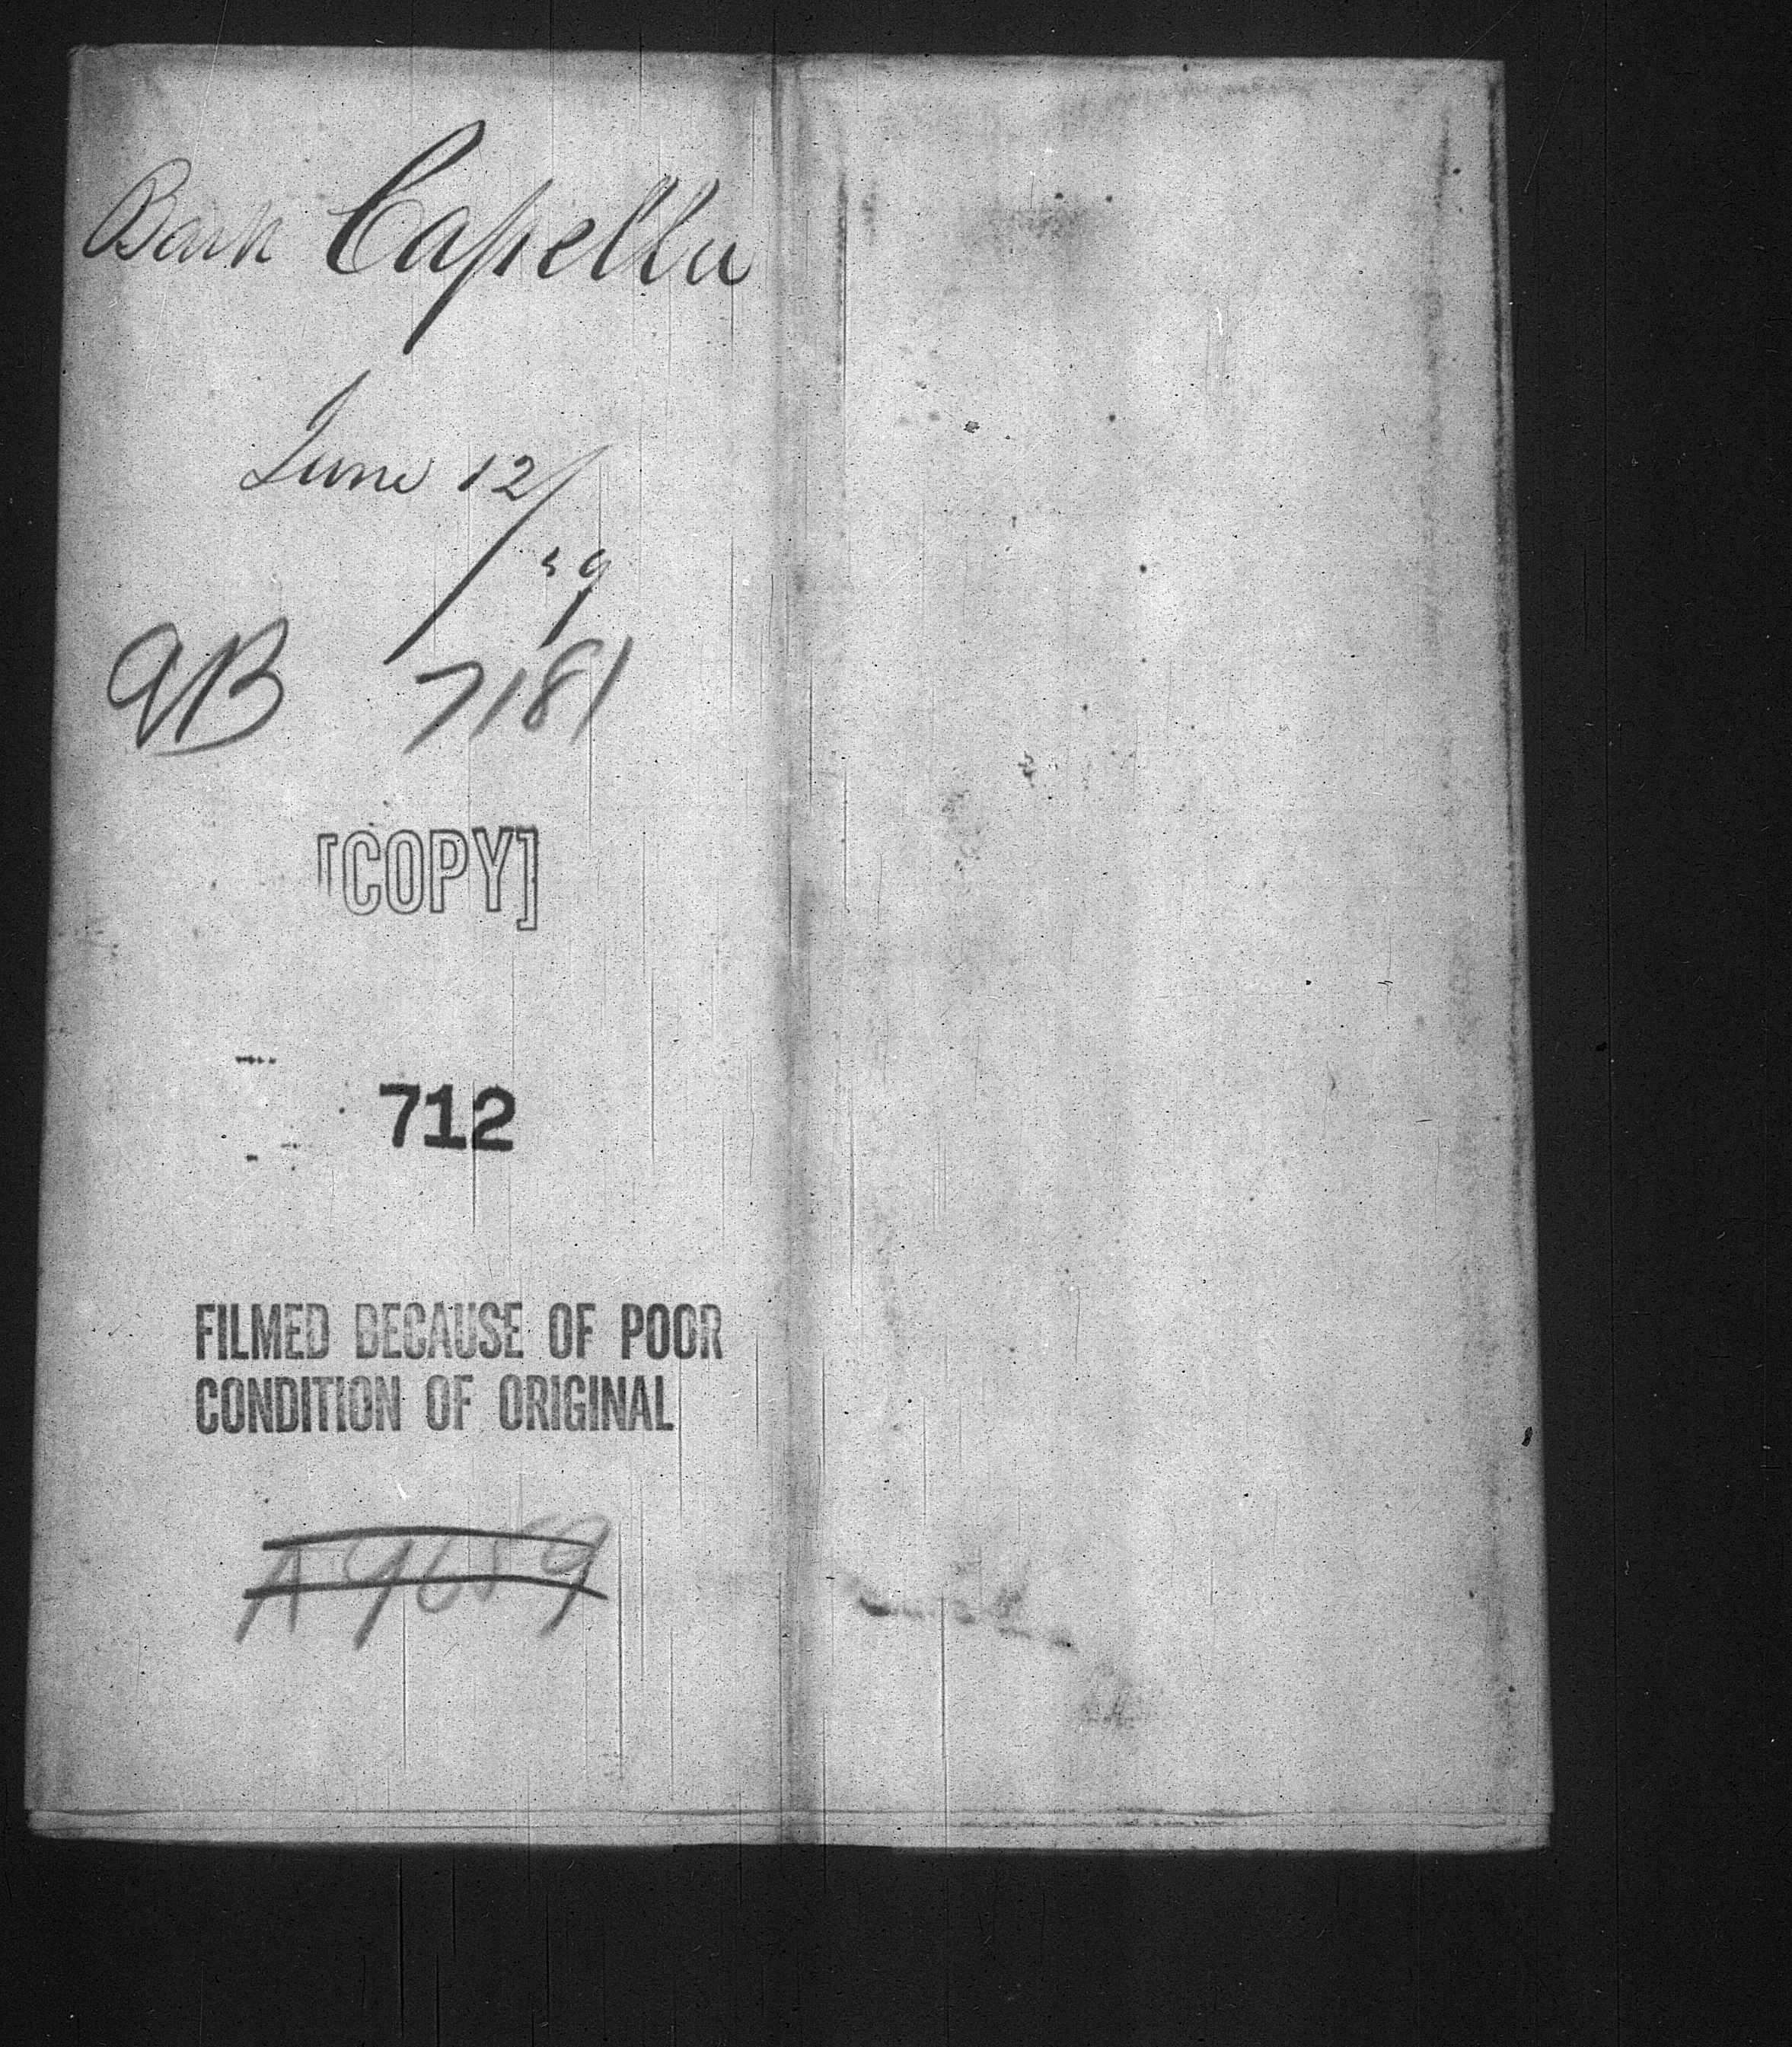 Bark Capella
June 12/
59
QB 7181
[COPY]
712
FILMED BECAUSE OF POOR
CONDITION OF ORIGINAL
A 9659